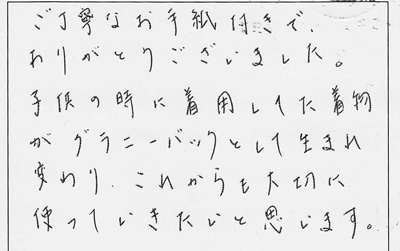 ご丁寧なお手紙付きで、
ありがとうございました。
子供の時に着用してた着物
がグラニーバックとして生まれ
変わり、これからも大切に
使っていきたいと思います。